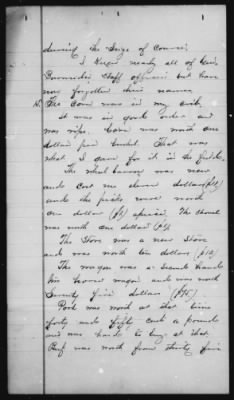 during the Seige of
I knew nearly all of Gen.
Burnsides Staff officers but have
now forgotten their names
The Corn was in my crib.
It was in good order and
was ripe. Corn was worth one
dollar per bushel. That was
what I gave for it in the field.
The wheel barrow was new
and cost me eleven dollars
and the picks were worth
one dollar ($1) apiece. The shovel
was worth one dollar ($1)
The Stove was a new Stove
and was worth ten dollars ($10)
The wagon was a second hand
two horse wagon and was worth
Seventy five dollars ($75)
Pork was worth at that time
forty and fifty cents a pound
and was hard to buy at that.
Beef was worth from thirty five